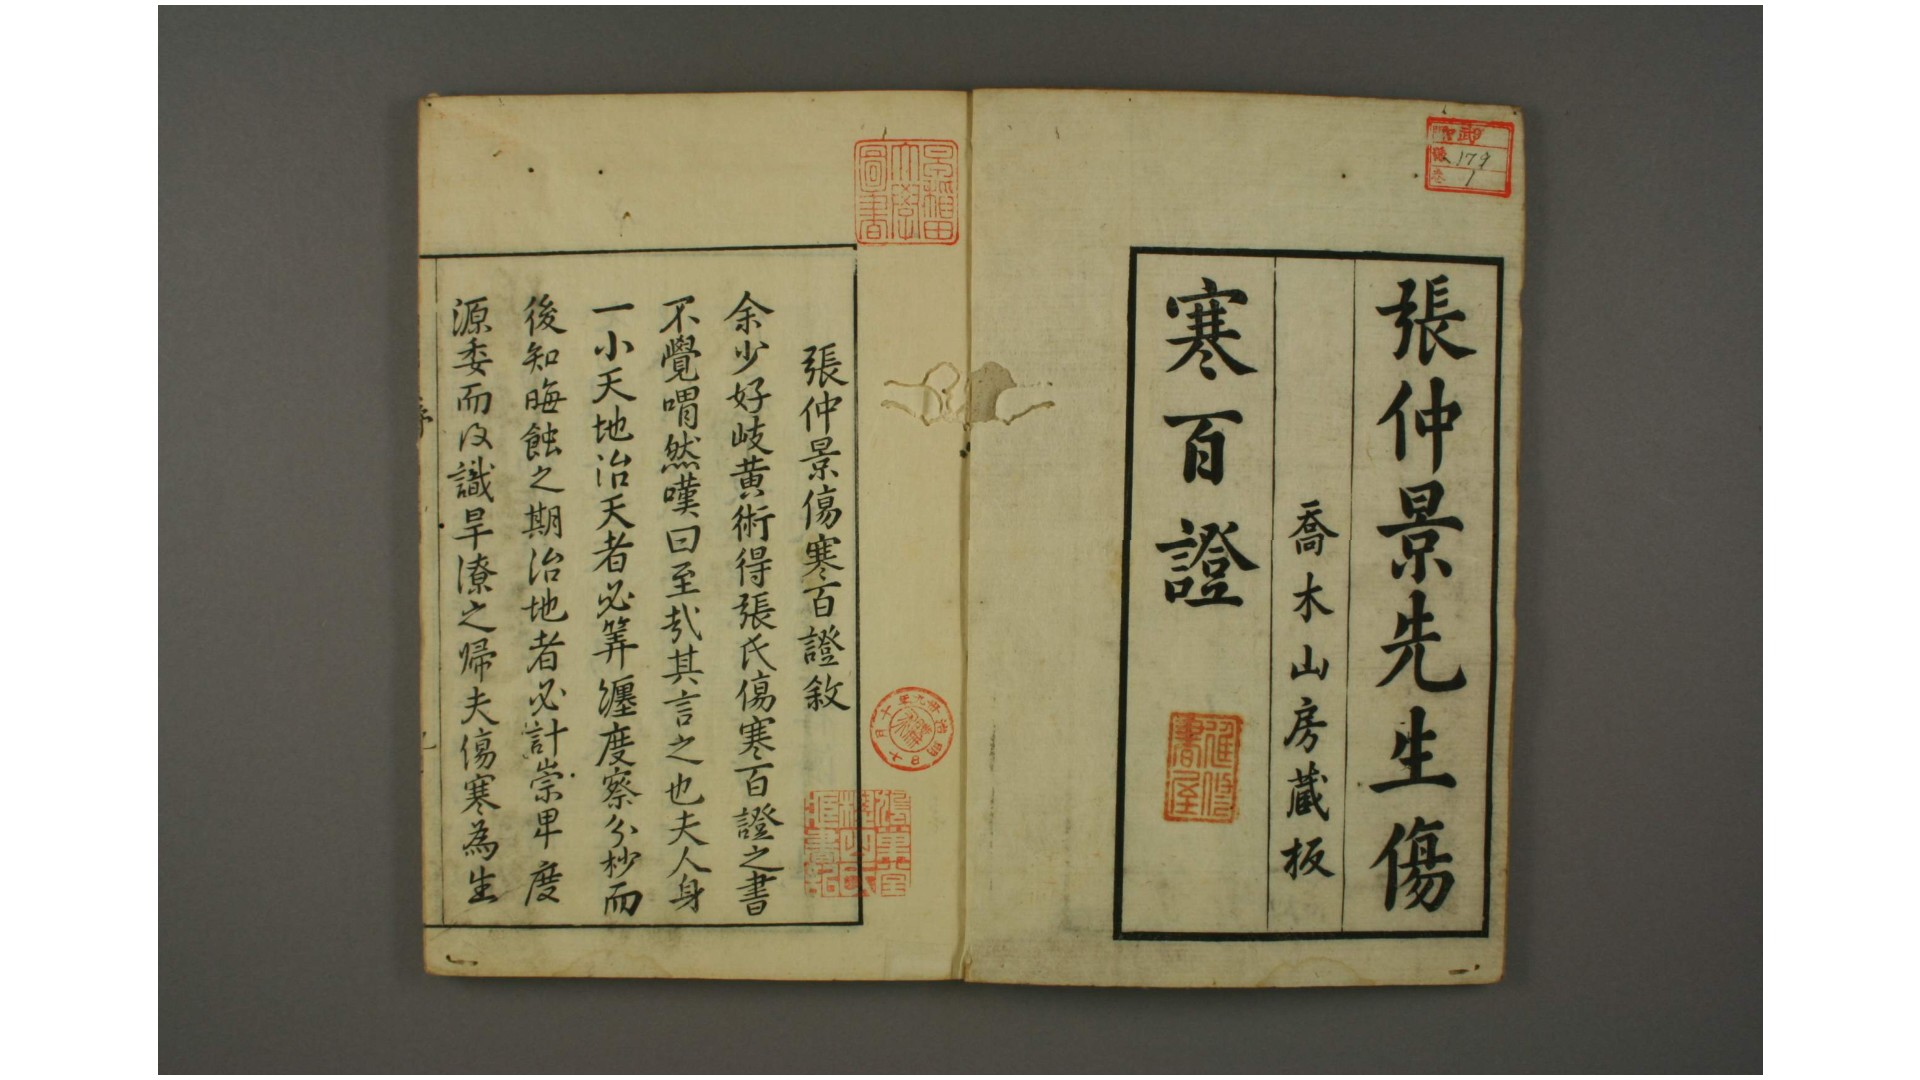 張仲景先生傷
喬木山房藏板
寒百證
179
1
早稻田
大學
圖書
張仲景傷寒百證敘
余少好岐黄術得張氏傷寒百證之書
不覺喟然嘆曰至哉其言之也夫人身
一小天地治天者必筭躔度察分杪而
後知晦蝕之期治地者必計崇卑度
源委而後識旱潦之歸夫傷寒為生